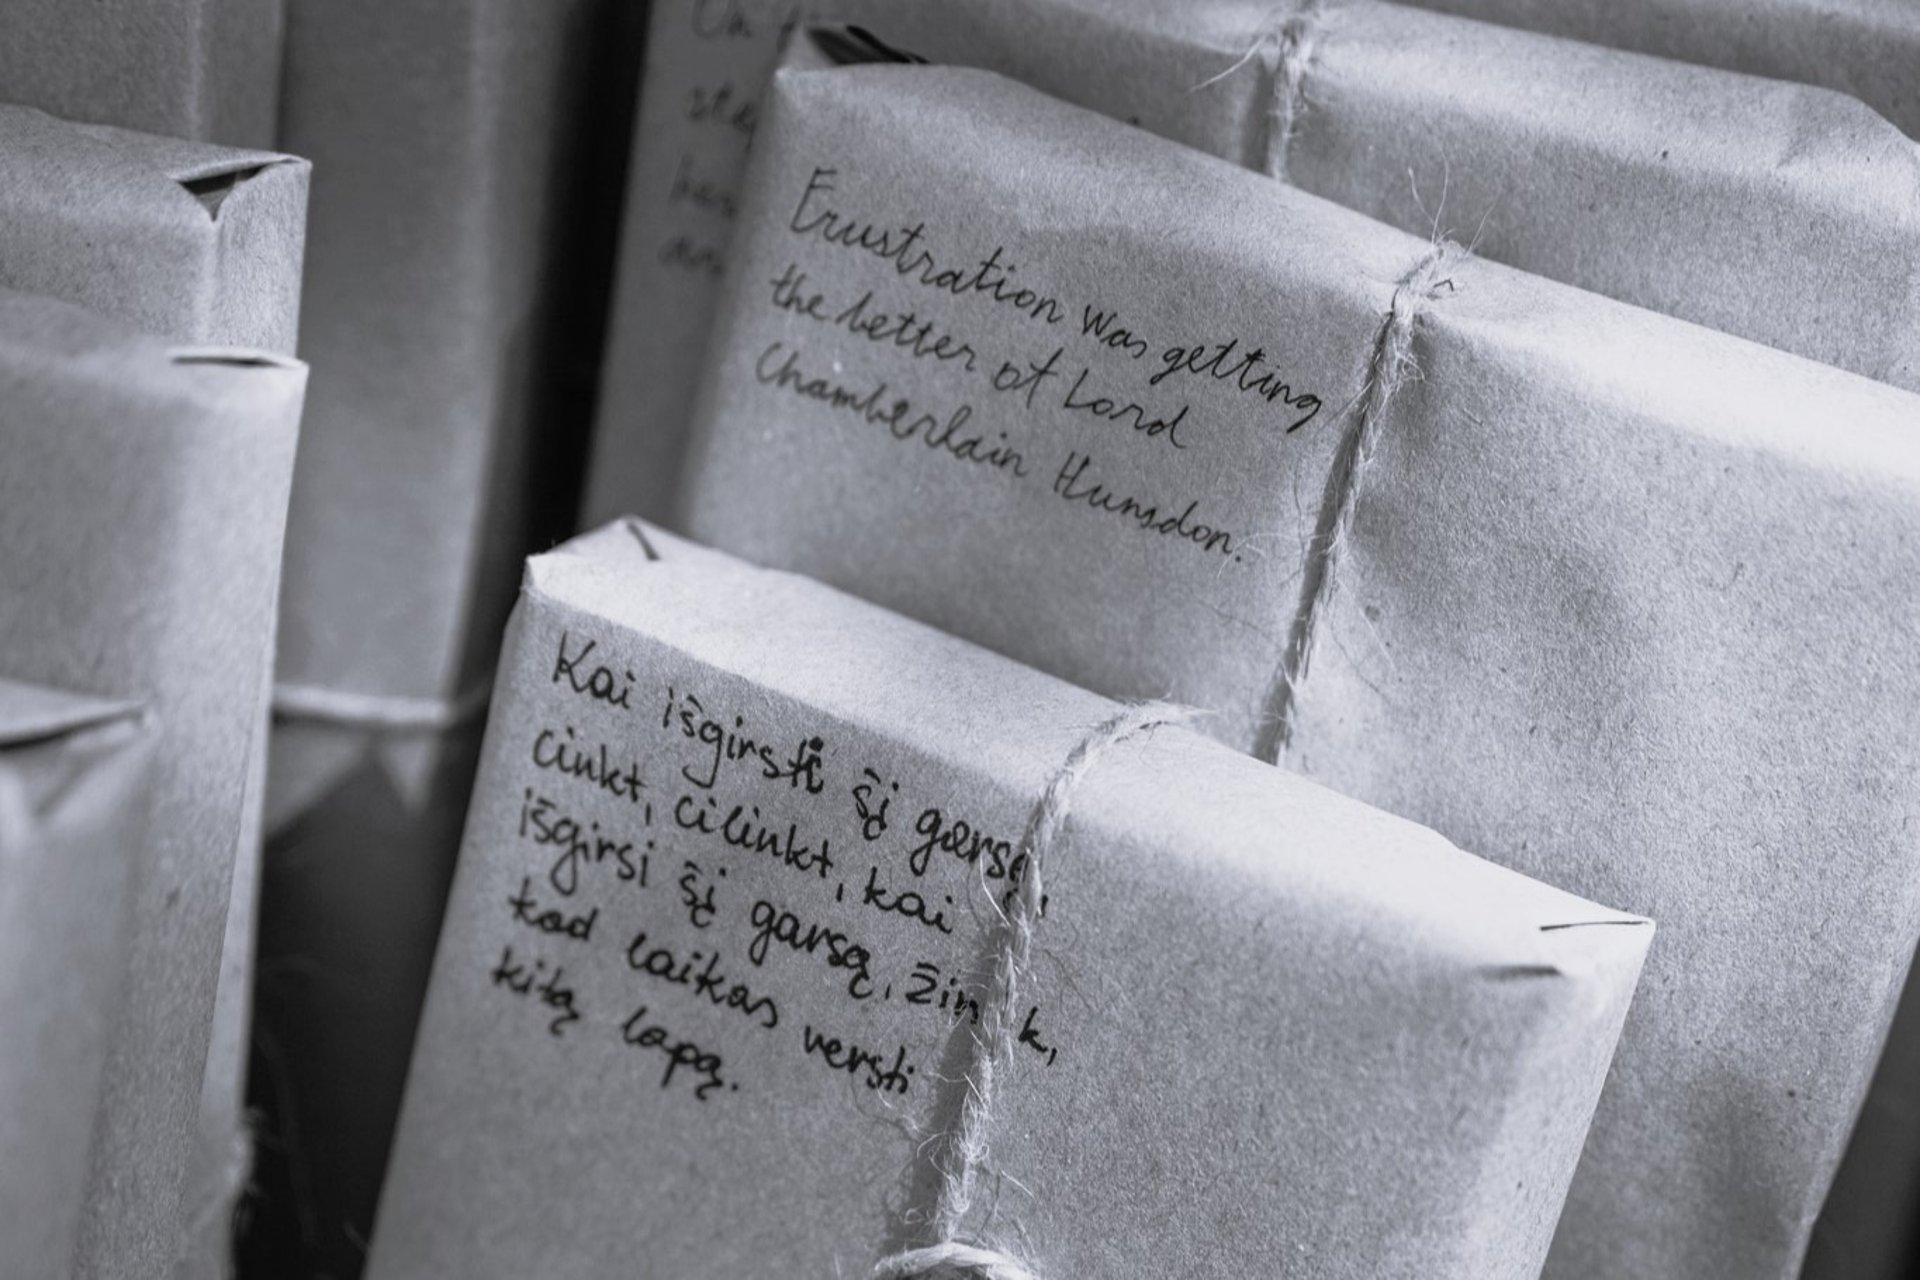 Frustration was getting
the better of Lord
Chamberlain Hunsdon.
Kai išgirsti šį garsą
cinkt, cilinkt, kai
išgirsi šį garsą,
kad laikas versti
kitą lapą.